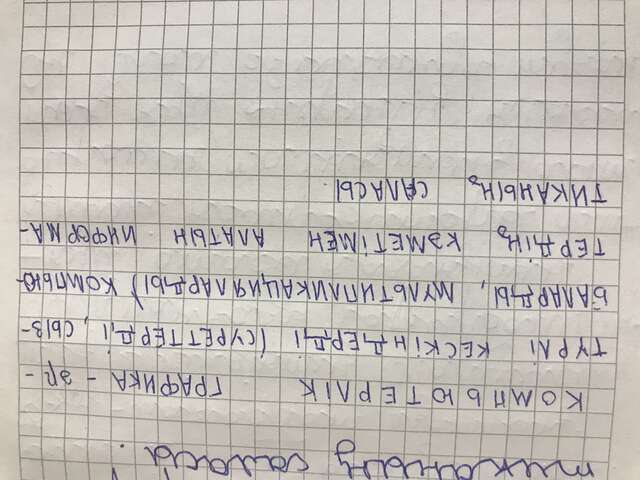 тиканың саласы.
КОМПЬЮТЕРЛІК ГРАФИКА – ӘР-
ТҮРЛІ КЕСКІНДЕРДІ (СУРЕТТЕРДІ, СЫЗ-
БАЛАРДЫ, МУЛЬТИПЛИКАЦИЯЛАРДЫ) КОМПЬЮ-
ТЕРДІҢ КӨМЕТІМЕН АЛАТЫН ИНФОРМА-
ТИКАНЫҢ САЛАСЫ